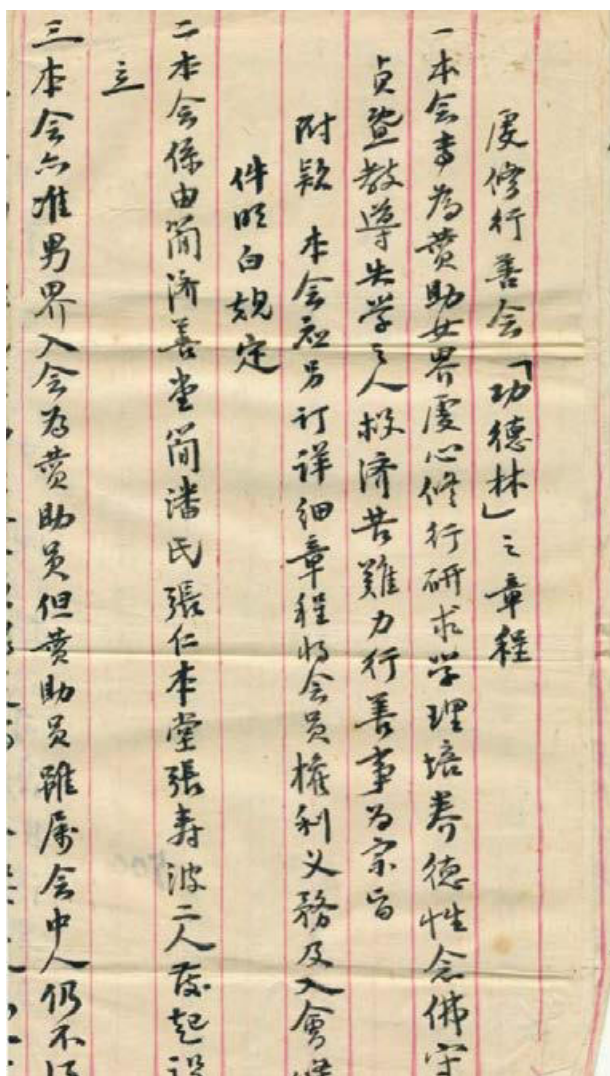 虔修行善会「功德林」之章程
一本会专为赞助女界虔心修行研求学理培养德性念佛守
贞暨教导失学之人拯济苦難力行善事为宗旨
附欵 本会应另订详细章程将会员權利义務及入會條
件明白规定
二本会係由简济善堂简潘氏張仁本堂張寿波二人發起设
立
三本会亦准男界入会为赞助员但赞助员雖属会中人仍不